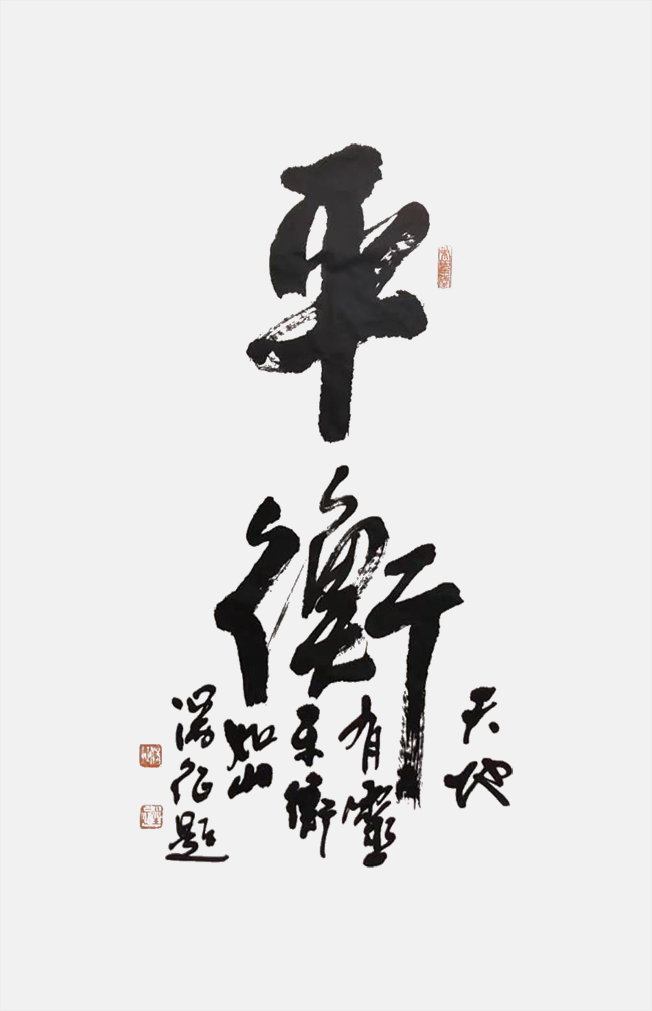 平衡
天地
有靈
平衡
如山
满征題